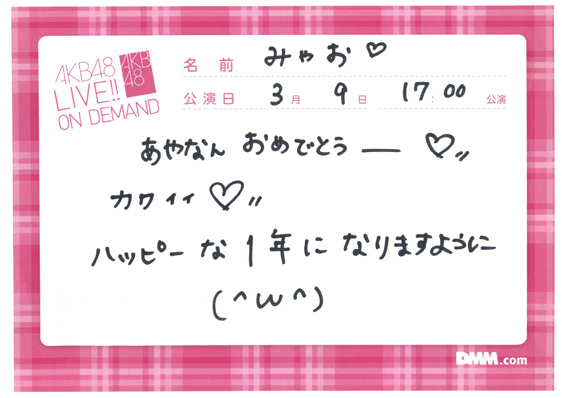 AKB48
LIVE!!
ON DEMAND
AKB
48
名前 みゃお♡
公演日 3月 9日 17:00 公演
あやなん おめでとう ― ♡〃
カワイイ ♡〃
ハッピーな1年に なりますように
(^ω^)
DMM.com